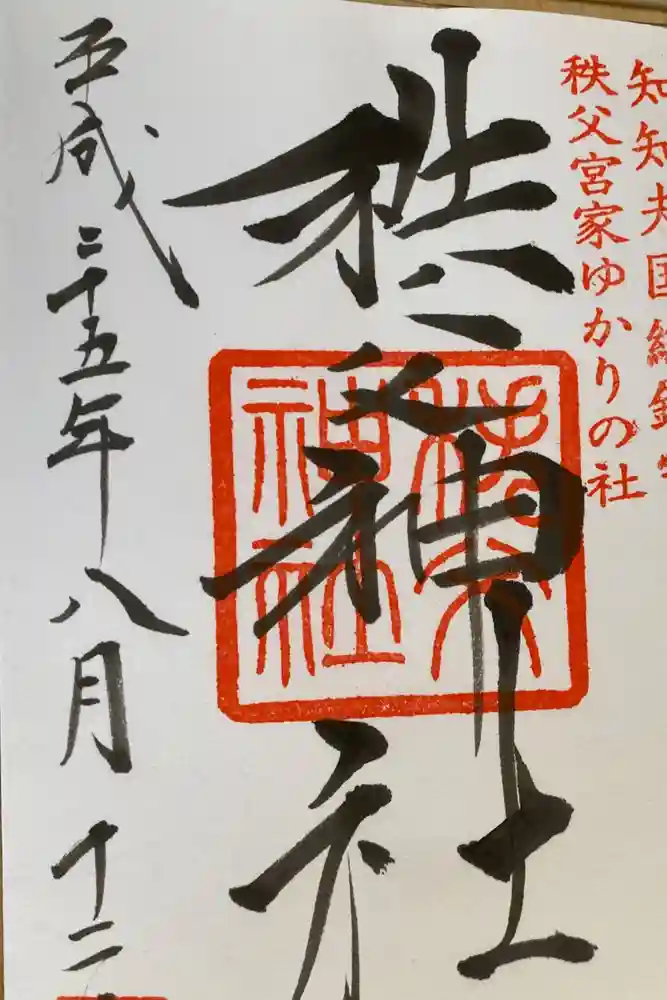 知知夫国総鎮
秩父宮家ゆかりの社
秩父神社
秩父
神社
平成二十五年八月十二